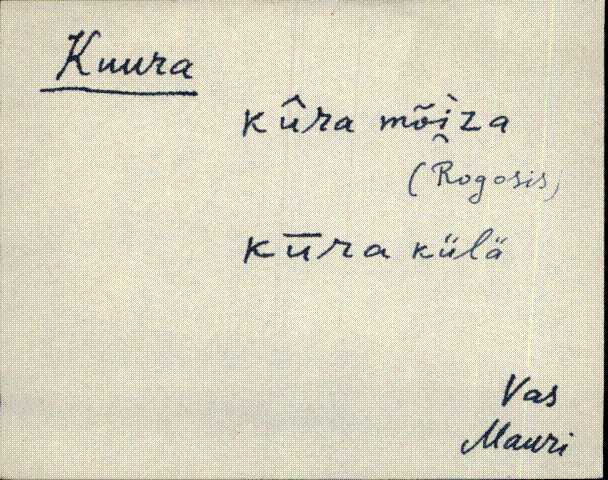 Kuura
kûra mõìza
(Rogosis)
kūra külä
Vas
Mauri